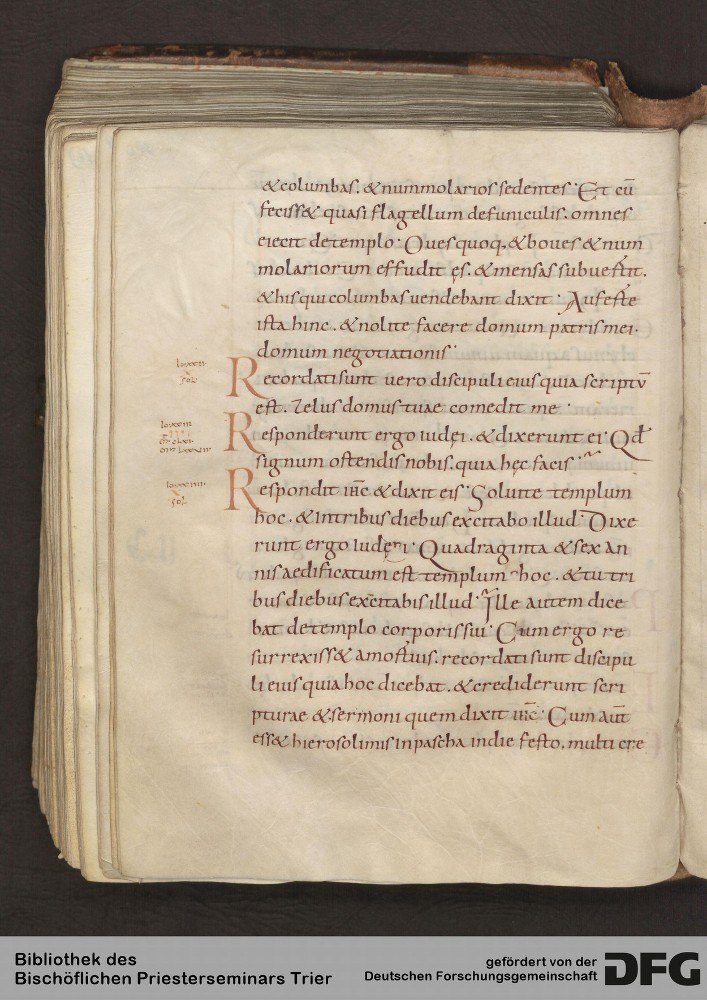 &columbas. &nummolarios sedentes. Et cū
feciss& quasi flagellum defuniculis. omnes
eiecit detemplo. Oues quoq. &boues &num
molariorum effudit ęs. &mensas subuertit.
&his qui columbas uendebant dixit. Auferte
ista hinc. &nolite facere domum patris mei.
domum negotiationis.
Recordati sunt uero discipuli eius quia scriptū
est. Zelus domus tuae comedit me.
Responderunt ergo iudęi. &dixerunt ei. Qđ
signum ostendis nobis. quia hęc facis
Respondit ihc̄ &dixit eis. Soluite templum
hoc. &intribus diebus excitabo illud. Dixe
runt ergo iudęi. Quadraginta &sex an
nis aedificatum est templum hoc. &tu tri
bus diebus excitabis illud. Ille autem dice
bat detemplo corporis sui. Cum ergo re
surrexiss& amortuis. recordati sunt discipu
li eius quia hoc dicebat. &crediderunt scri
pturae &sermoni quem dixit ihc̄. Cum aut̄
ess& hierosolimis in pascha in die festo. multi cre
Bibliothek des
Bischöflichen Priesterseminars Trier
gefördert von der
Deutschen Forschungsgemeinschaft
DFG